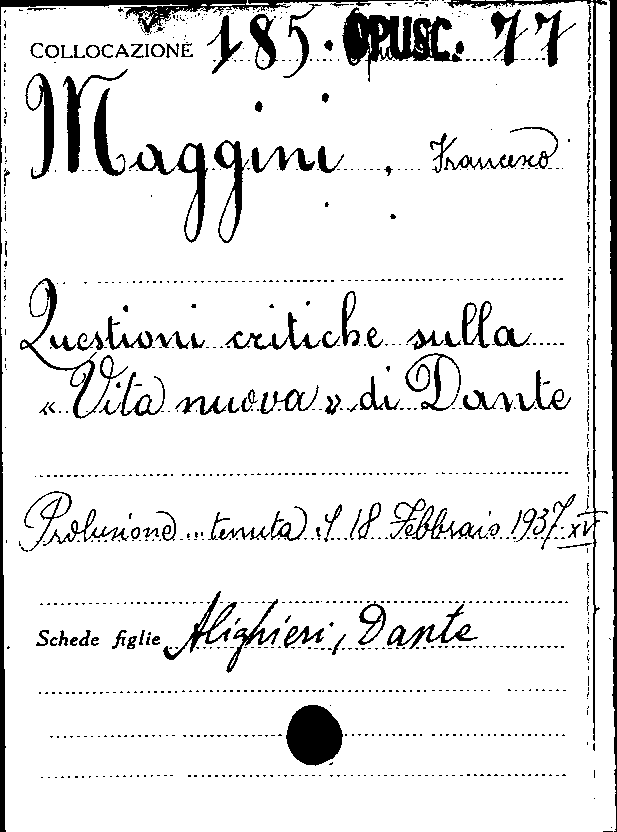 COLLOCAZIONE 185. OPUSC. 77
Maggini, Francesco
Questioni critiche sulla
« Vita nuova » di Dante
Prolusione... tenuta il 18 Febbraio 1937 XV
Schede figlie Alighieri, Dante